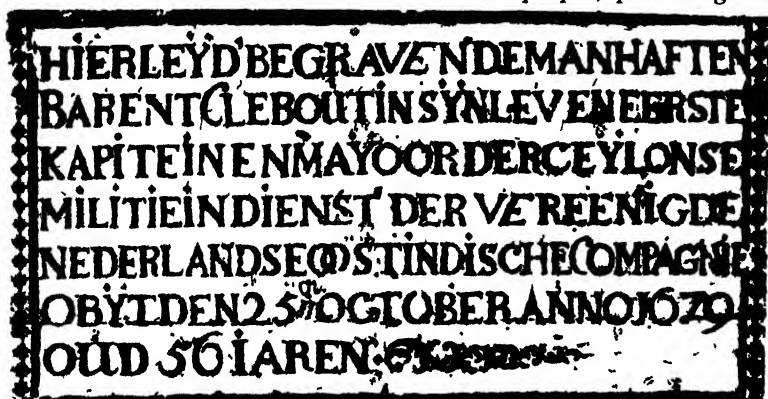 HIERLEYDBEGRAVENDEMANHAFTEN
BARENTCLEBOUTINSYNLEVENEERSTE
KAPITEINENMAYOORDERCEYLONSE
MILITIEINDIENST DER VEREENIGDE
NEDERLANDSEOOSTINDISCHECOMPAGNIE
OBYTDEN25 OCTOBERANNO1679
OUD 56 IAREN